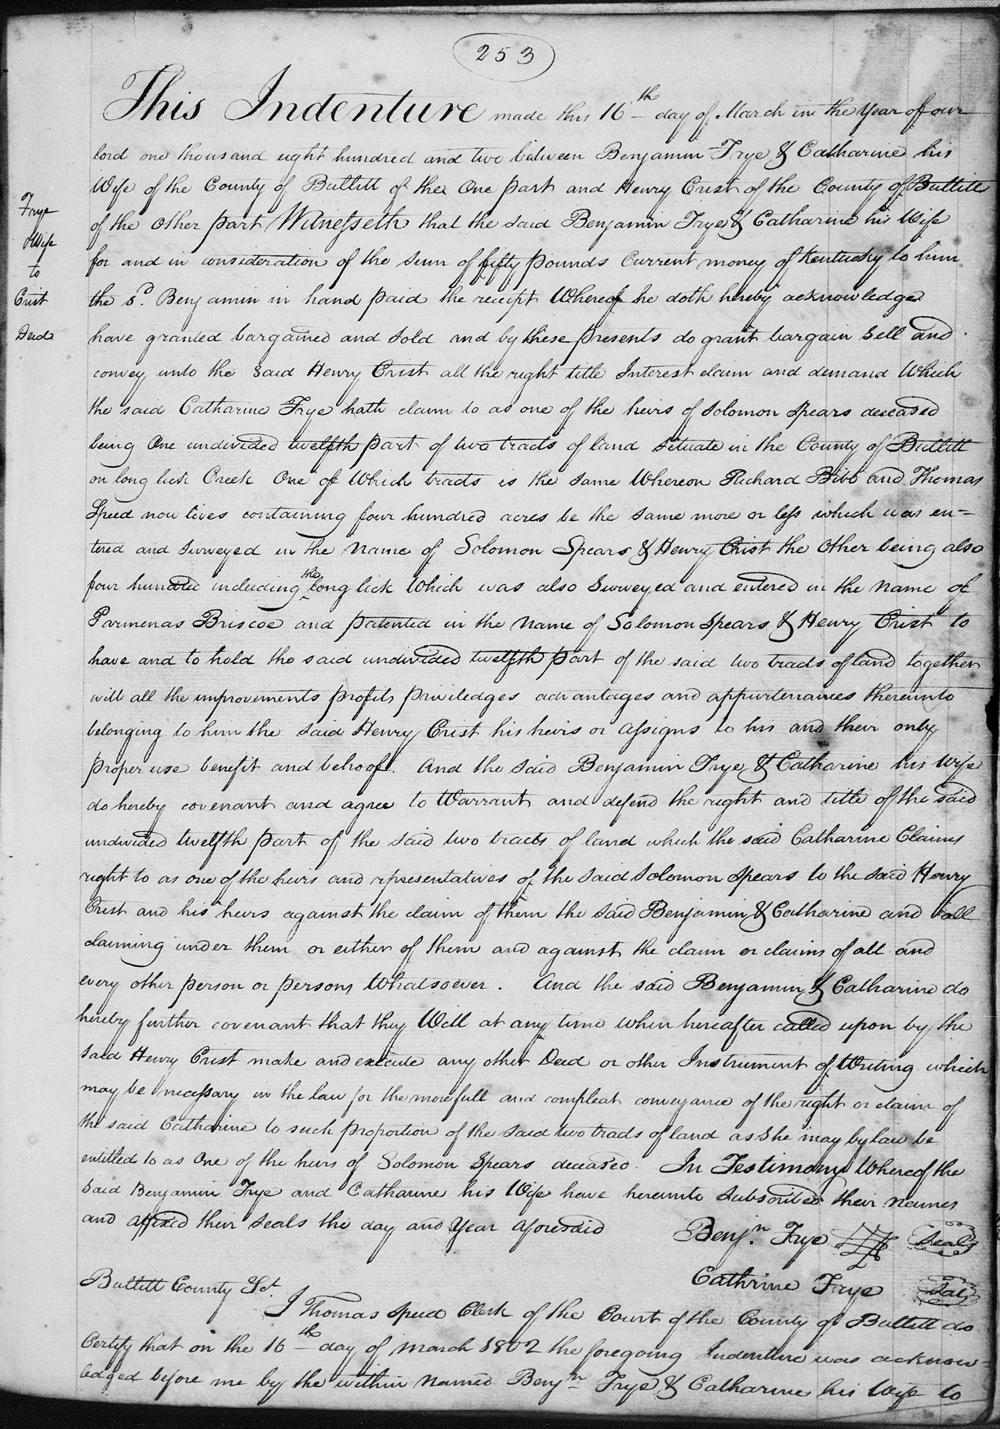 253
This Indenture made this 16th day of March in the Year of our
lord one thousand eight hundred and two between Benjamin Frye & Catharine his
Wife of the County of Bullitt of the One part and Henry Crist of the County of Bullitt
of the other part Witnesseth that the said Benjamin Frye & Catharine his Wife
for and in consideration of the sum of fifty pounds Current money of Kentucky to him
the sd. Benjamin in hand paid the receipt Whereof he doth hereby acknowledge
have granted bargained and sold and by these presents do grant bargain sell and
convey unto the said Henry Crist all the right title Interest claim and demand Which
the said Catharine Frye hath claim to as one of the heirs of Solomon Spears deceased
being One undivided twelfth part of two tracts of land situate in the County of Bullitt
on long lick Creek One of Which tracts is the same Whereon Richard Bibb and Thomas
Speed now lives containing four hundred acres be the same more or less which was en=
tered and surveyed in the Name of Solomon Spears & Henry Crist the Other being also
four hundred including the long lick Which was also Surveyed and entered in the Name of
Parmenas Briscoe and patented in the Name of Solomon Spears & Henry Crist to
have and to hold the said undivided twelfth part of the said two tracts of land together
with all the improvements profits priviledges advantages and appurtenances thereunto
belonging to him the said Henry Crist his heirs or assigns to his and their only
proper use benefit and behoof. And the said Benjamin Frye & Catharine his Wife
do hereby covenant and agree to Warrant and defend the right and title of the said
undivided twelfth part of the said two tracts of land which the said Catharine Claims
right to as one of the heirs and representatives of the said Solomon Spears to the said Henry
Crist and his heirs against the claim of them the said Benjamin & Catharine and all
claiming under them or either of them and against the claim or claims of all and
every other person or persons Whatsoever. And the said Benjamin & Catharine do
hereby further covenant that they Will at any time when hereafter called upon by the
said Henry Crist make and execute any other Deed or other Instrument of Writing which
may be necessary in the law for the more full and compleat conveyance of the right or claim of
the said Catharine to such proportion of the said two tracts of land as She may by law be
entitled to as One of the heirs of Solomon Spears deceased. In Testimony Whereof the
said Benjamin Frye and Catharine his Wife have hereunto subscribed their names
and affixed their seals the day and Year aforesaid
Benjn. Frye Seal
Cathrine Frye Seal
Bullitt County Sct.
I Thomas Speed Clerk of the Court of the County of Bullitt do
Certify that on the 16th day of March 1802 the foregoing Indenture was acknow=
ledged before me by the within Named Benjn Frye & Catharine his Wife to
Frye
& Wife
to
Crist
Deed